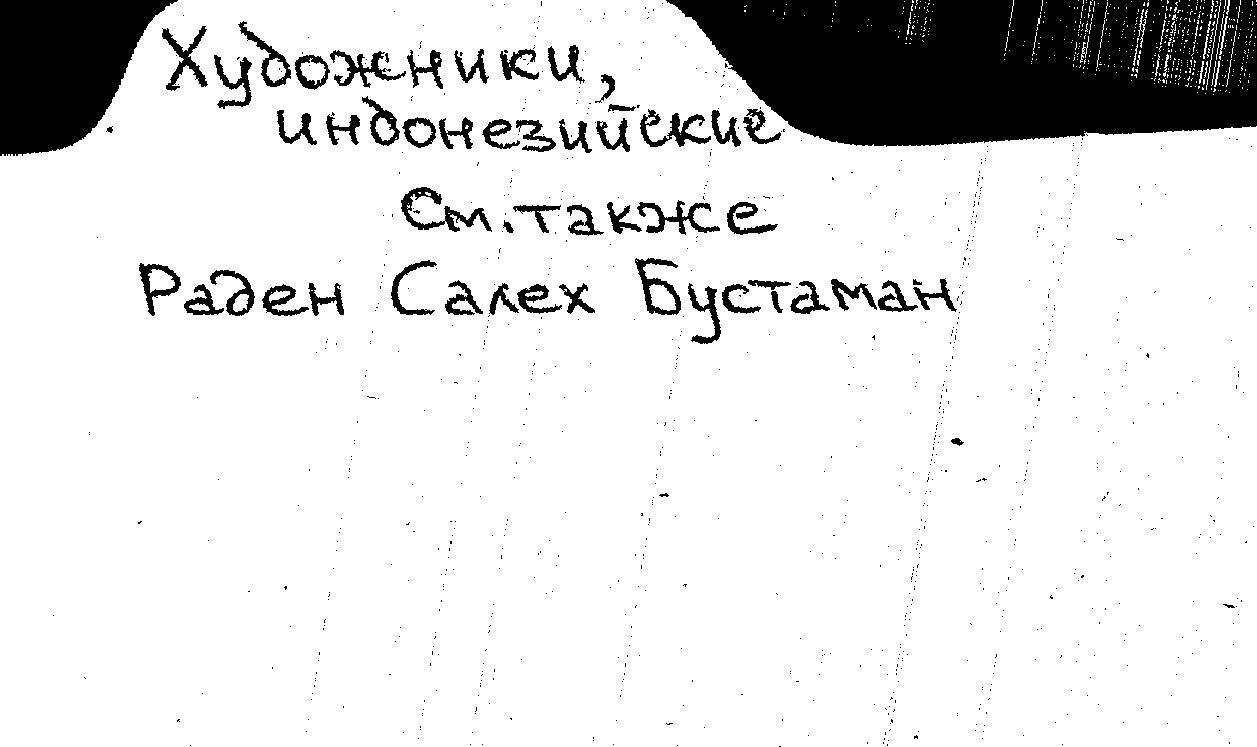 Художники,
индонезийские
См. также
Раден Салех Бустаман